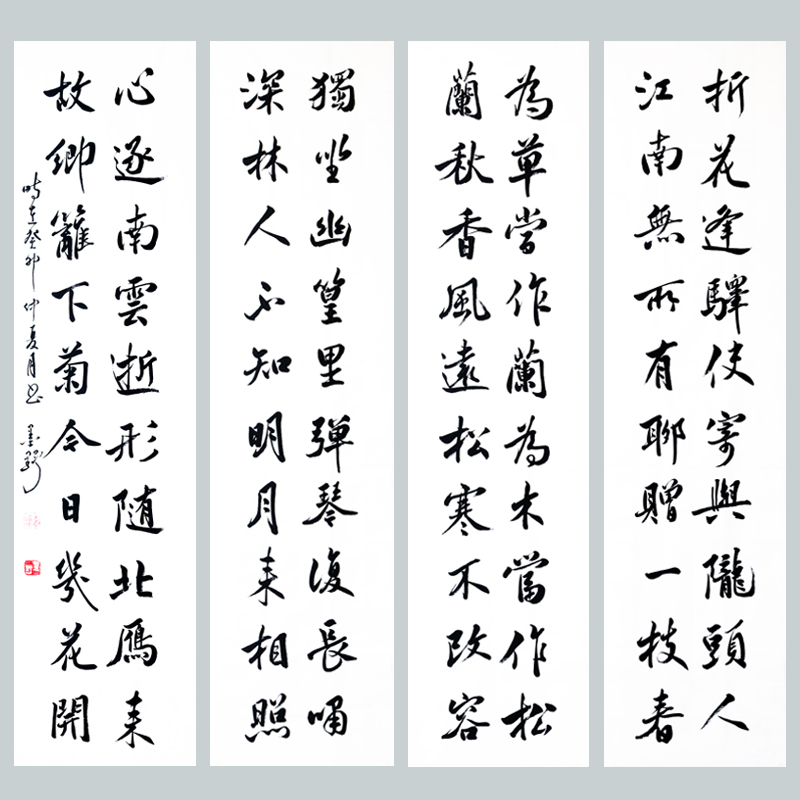 折花逢驛使寄與隴頭人
江南無所有聊贈一枝春
為草當作蘭為木當作松
蘭秋香風遠松寒不改容
獨坐幽篁里弹琴復長嘯
深林人不知明月来相照
心逐南雲逝形随北雁来
故鄉籬下菊今日幾花開
時在癸卯仲夏月書